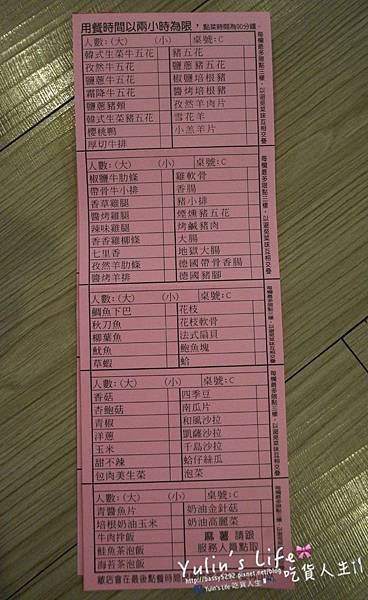 用餐時間以兩小時為限，點菜時間為90分鐘
人數:(大) (小) 桌號:C
韓式生菜牛五花 豬五花
孜然牛五花 鹽蔥豬五花
鹽蔥牛五花 椒鹽培根豬
霜降牛五花 醬烤培根豬
鹽蔥豬頰 孜然羊肉片
韓式生菜豬五花 雪花羊
櫻桃鴨 小羔羊片
厚切牛排
每欄最多限點三樣，以避免菜味互相交疊
人數:(大) (小) 桌號:C
椒鹽牛肋條 雞軟骨
帶骨牛小排 香腸
香草雞腿 豬小排
醬烤雞腿 煙燻豬五花
辣味雞腿 烤鹹豬肉
香香雞柳條 大腸
七里香 地獄大腸
孜然羊肋條 德國帶骨香腸
醬烤羊排 德國豬腳
每欄最多限點三樣，以避免菜味互相交疊
人數:(大) (小) 桌號:C
鯛魚下巴 花枝
秋刀魚 花枝軟骨
柳葉魚 法式扇貝
魷魚 鮑魚塊
草蝦 蛤
每欄最多限點三樣，以避免菜味互相交疊
人數:(大) (小) 桌號:C
香菇 四季豆
杏鮑菇 南瓜片
青椒 和風沙拉
洋蔥 凱薩沙拉
玉米 千島沙拉
甜不辣 蛤仔絲瓜
包肉美生菜 泡菜
每欄最多限點三樣，以避免菜味互相交疊
人數:(大) (小) 桌號:C
青醬魚片 奶油金針菇
培根奶油玉米 奶油高麗菜
牛肉拌飯 麻薯請跟
鮭魚茶泡飯 服務人員點用
海苔茶泡飯
敝店會在最後點餐時間
Yulin's Life
http://bassy5292.pixnet.net/blog
Yulin's Life吃貨人生
吃貨人生!!